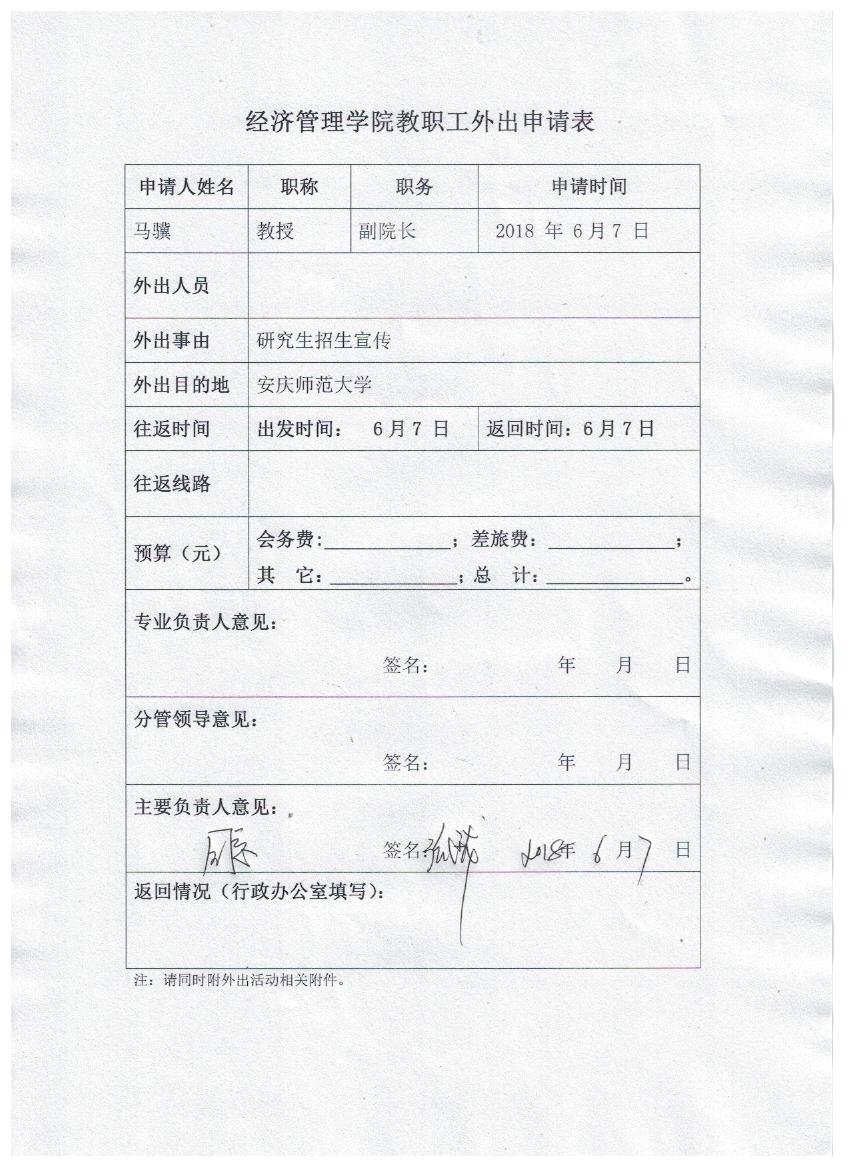 经济管理学院教职工外出申请表
申请人姓名 职称 职务 申请时间
马骥 教授 副院长 2018 年 6月7 日
外出人员
外出事由 研究生招生宣传
外出目的地 安庆师范大学
往返时间 出发时间： 6月7 日 返回时间：6月7日
往返线路
会务费:____________； 差旅费：____________；
预算（元）
其 它：____________；总 计：_____________。
专业负责人意见：
签名： 年 月 日
分管领导意见：
签名： 年 月 日
主要负责人意见：
同意 签名： 2018年 6 月 7 日
返回情况（行政办公室填写）：
注：请同时附外出活动相关附件。